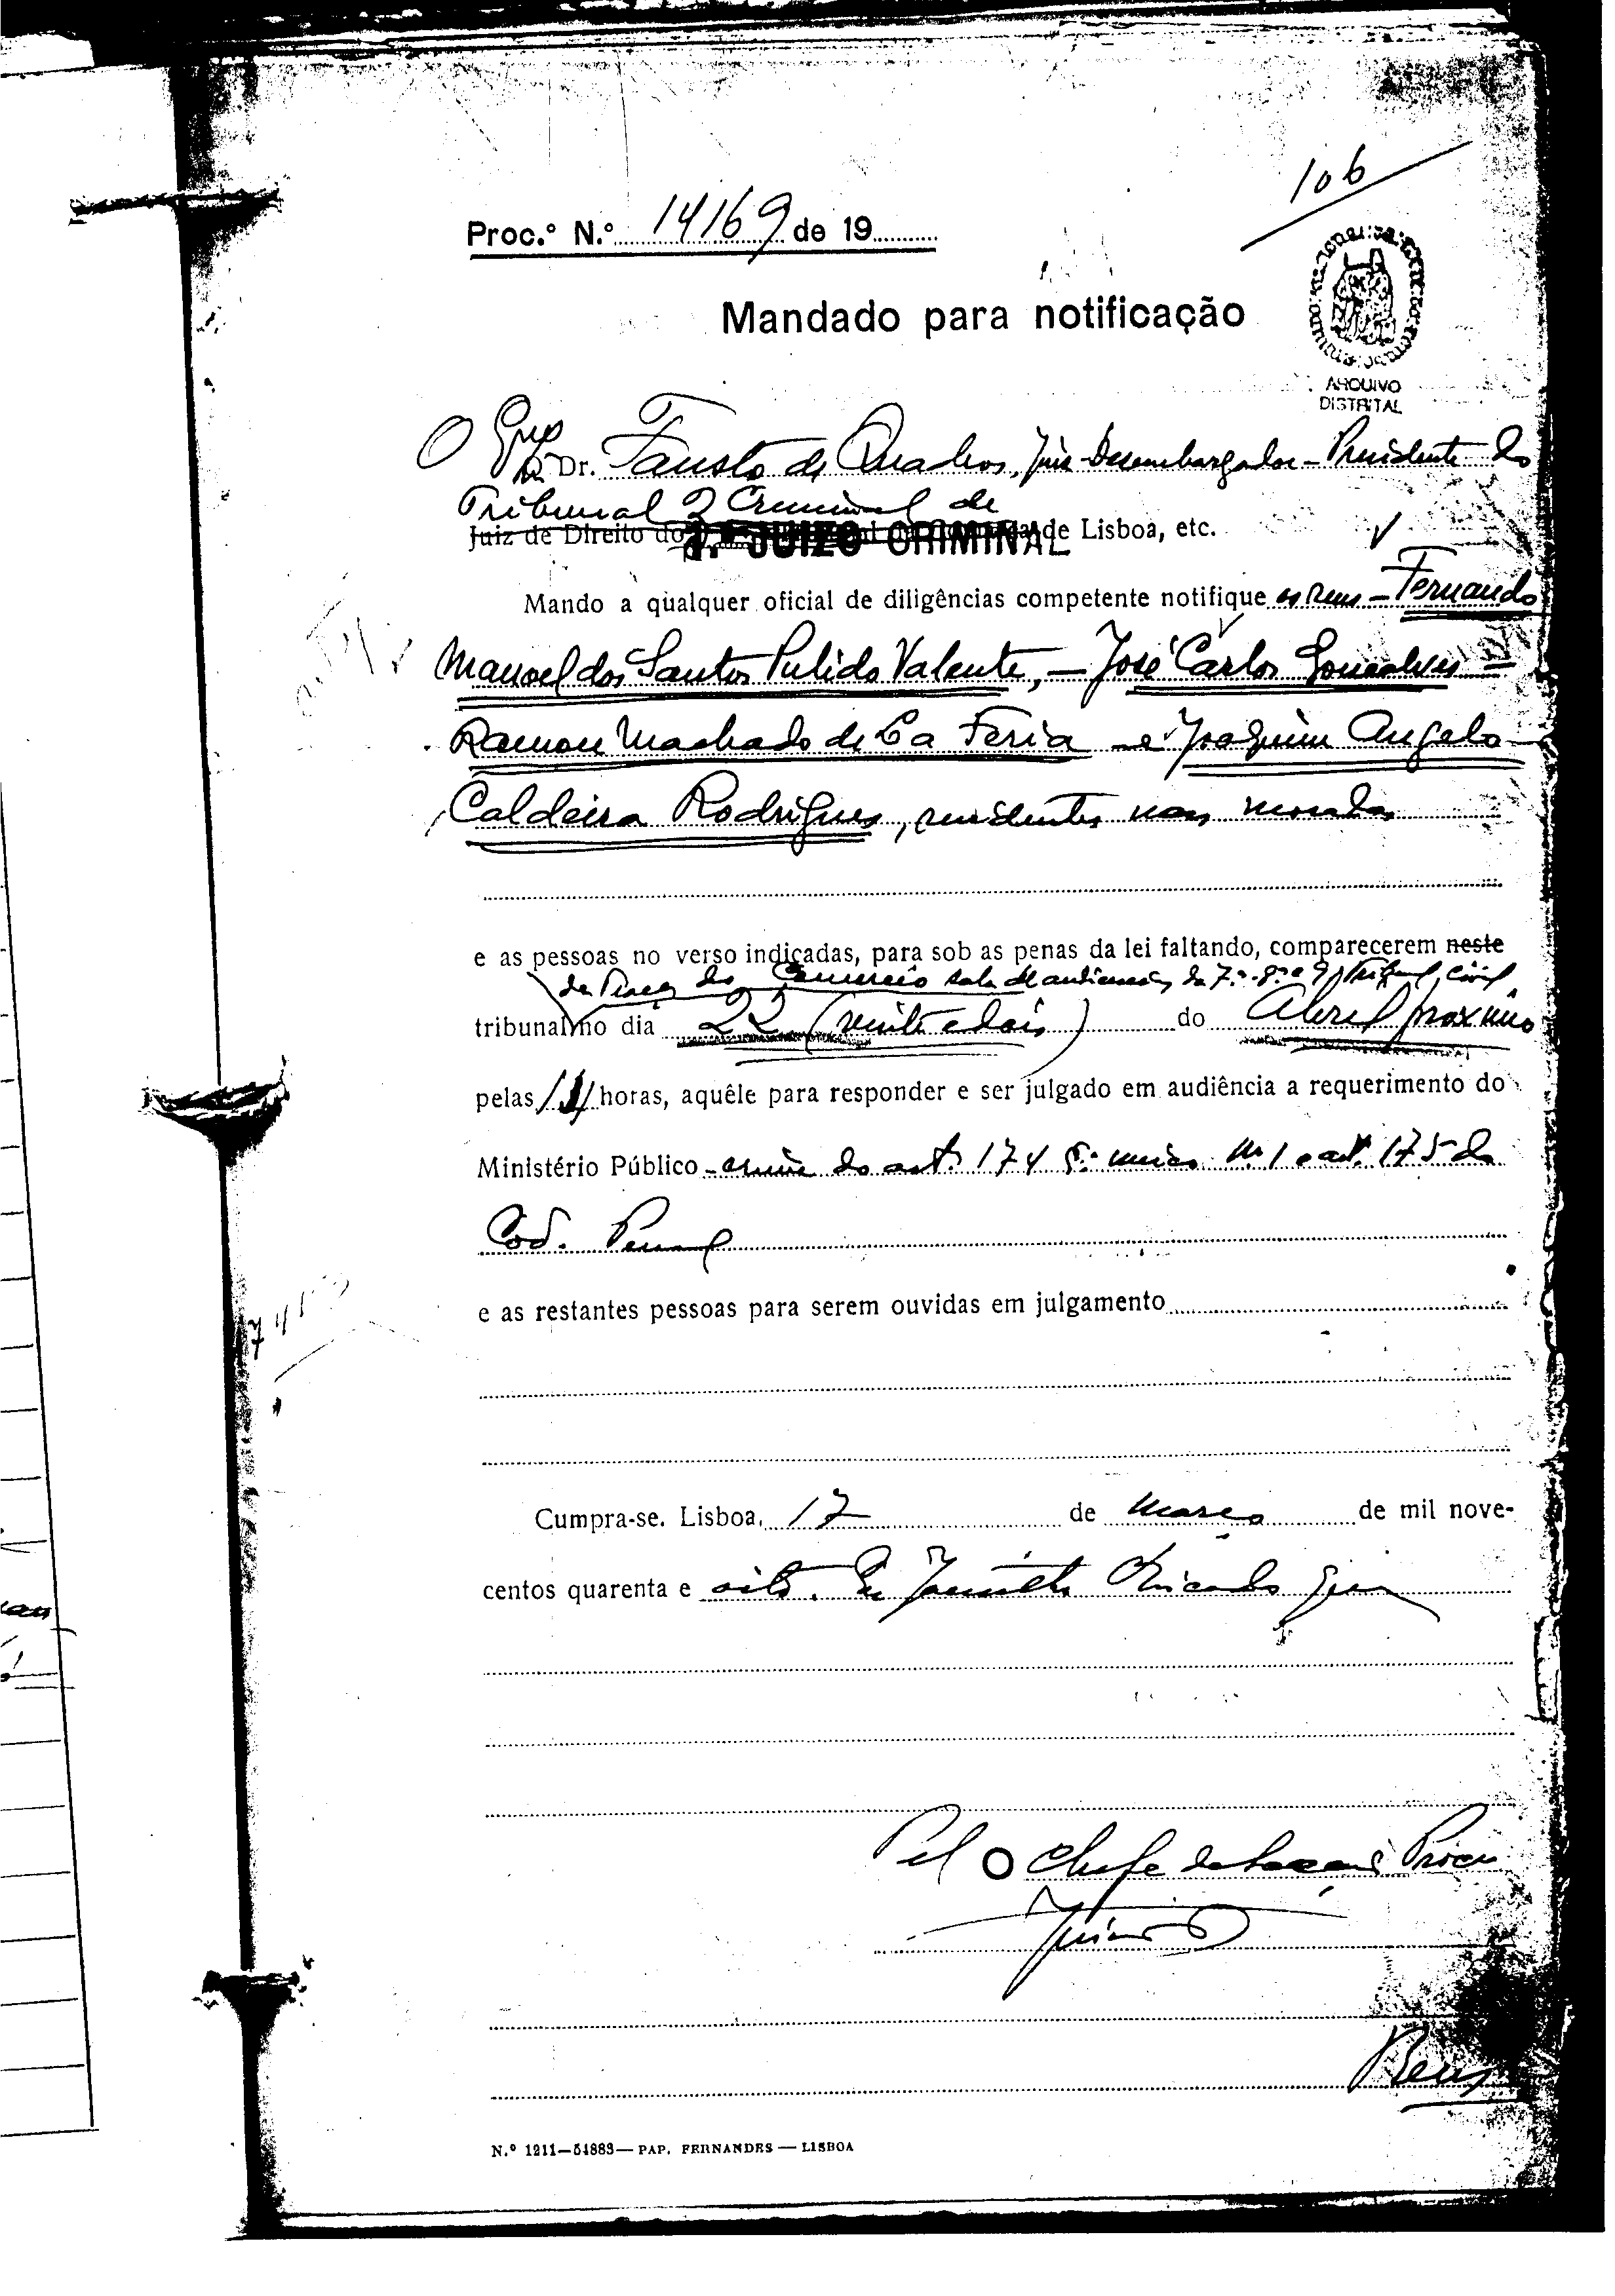 106
Proc.º N.º 14169 de 19
Mandado para notificação
ARQUIVO
DISTRITAL
O Dr. Fausto de Quadros, Juiz-Desembargador-Presidente do
Tribunal Criminal de
Juiz de Direito do de Lisboa, etc.
JUIZO CRIMINAL
Mando a qualquer oficial de diligências competente notifique os reus - Fernando
Manoel dos Santos Pulido Valente, - José Carlos Gonçalves -
Ramon Machado de La Feria - e Joaquim Angelo
Caldeira Rodrigues, residentes nas moradas
e as pessoas no verso indicadas, para sob as penas da lei faltando, comparecerem neste
da Praça do Comercio sala de audiencias da 7.ª 8.ª e 9.ª civel
tribunal no dia 22 (vinte e dois) do Abril proximo
pelas horas, aquêle para responder e ser julgado em audiência a requerimento do
Ministério Público - crime do art. 174 § unico nº 1 e art. 175 do
Cod. Penal
e as restantes pessoas para serem ouvidas em julgamento
Cumpra-se. Lisboa, 17 de Março de mil nove-
centos quarenta e oito. Eu
Pel O Chefe da Secção
Reus
N.º 1211—51883— PAP. FERNANDES — LISBOA